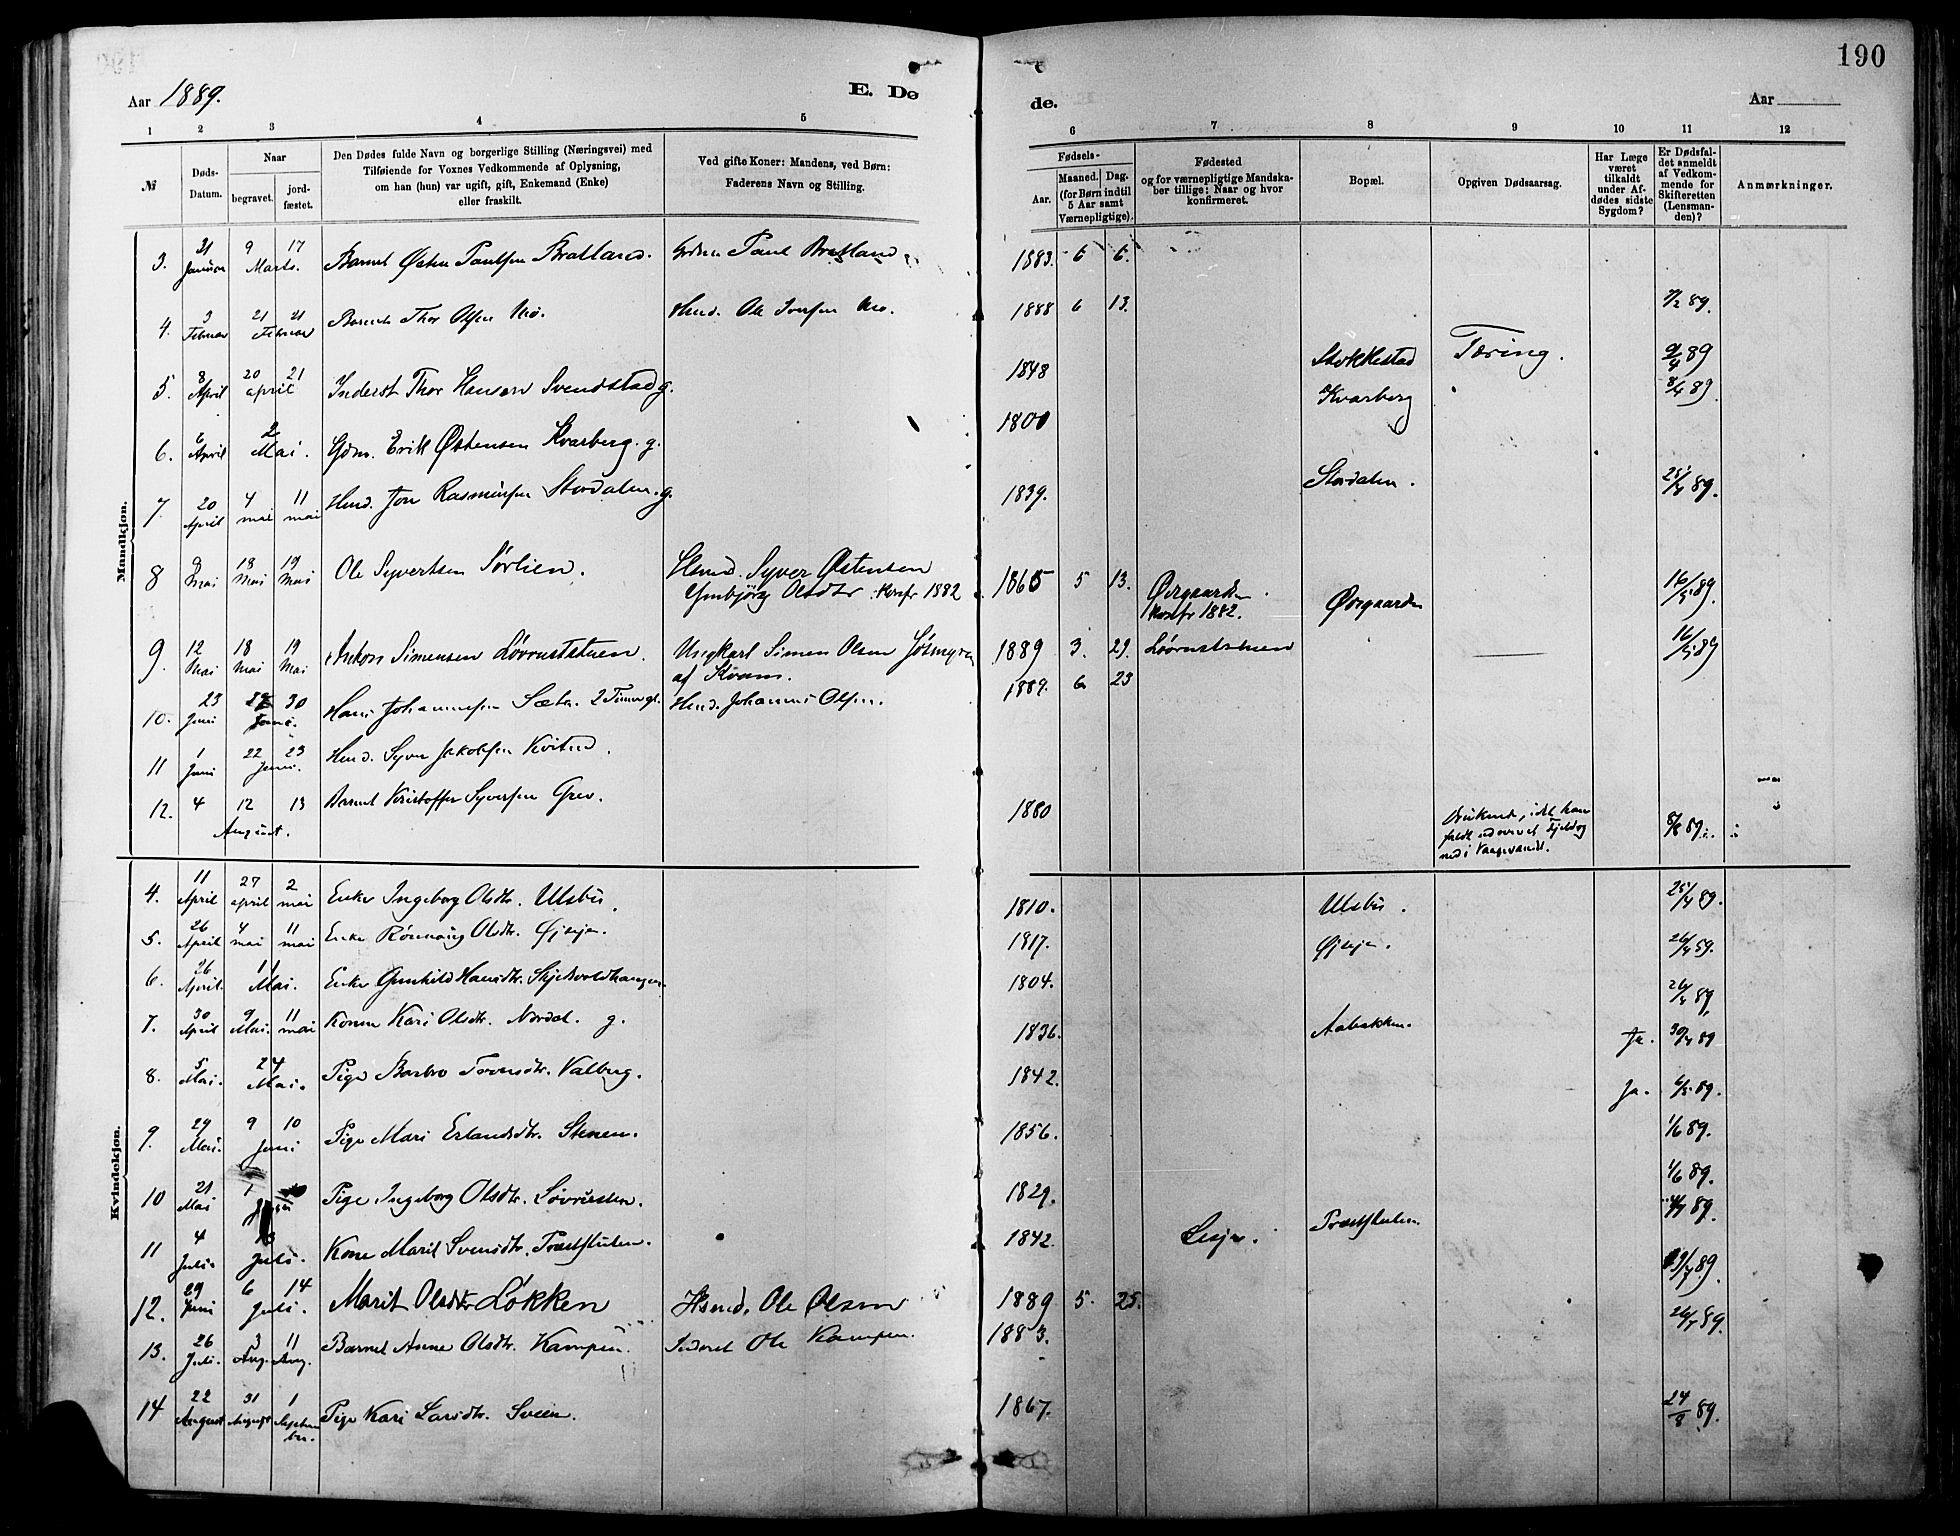 190
Aar 1889.
E. Dø
de.
Aar
1 2 3 4 5
6 7 8 9 10 11 12
№
Døds-
Datum.
Naar
begravet.
jord-
fæstet.
Den Dødes fulde Navn og borgerlige Stilling (Næringsvei) med
Tilføiende for Voxnes Vedkommende af Oplysning,
om han (hun) var ugift, gift, Enkemand (Enke)
eller fraskilt.
Ved gifte Koner: Mandens, ved Børn:
Faderens Navn og Stilling.
Fødsels-
Aar.
Maaned. Dag.
(for Børn indtil
5 Aar samt
Værnepligtige).
Fødested
og for værnepligtige Mandska-
ber tillige: Naar og hvor
konfirmeret.
Bopæl.
Opgiven Dødsaarsag.
Har Læge
været
tilkaldt
under Af-
dødes sidste
Sygdom?
Er Dødsfal-
det anmeldt
af Vedkom-
mende for
Skifteretten
(Lensman-
den)?
Anmærkninger.
Mandkjøn.
3. 21 Januar 9 17 Marts. Barnet Østen Paulsen Bratland. Paul Bratland 1883. 6 6.
4. 3 Februar 21 21 Februar Barnet Thor Olsen Mo. Hmd. Ole Iversen Mo. 1888 6 13. 7/2 89.
5. 8 April 20 21 april Inderst Thor Hansen Svendstad g. 1848 Stokkestad Tæring. 9/4 89
6. 6 April 2 Mai. Gdm. Erik Østensen Kvarberg. g. 1800 Kvarberg 8/4 89.
7. 20 April 4 mai 11 mai Hmd. Jon Rasmussen Stordalen. g. 1839. Stordalen. 25/4 89.
8 9 Mai 18 Mai 19 Mai Ole Syvertsen Sørlien. Hmd. Syver Østensen
Ombjörg Olsdtr. Konfr 1882 1865 5 13. Øvrgaarden
Konfr 1882. Øvrgaarden 16/5 89.
9. 12 Mai 18 Mai 19 Mai Anton Simensen Løvrustståen. Ungkarl Simen Olsen
af Kvam. 1889 3. 29. 16/5 89
10. 23 Juni 30 Juni. Hans Johannesen Sæter. 2 Timer gl. Hmd. Johannes Olsen. 1889. 6 23
11 1 Juni 22 23 Juni. Hmd. Syver Jakobsen
12. 4 12 13 August. Barnet Kristoffer Syversen Grev. 1880 Druknet, idet han
faldt udover et Fjeld og
ned i Vaagevandet. 8/8 89.
Kvindekjøn.
4. 11 April 27 april 2 mai Enke Ingeborg Olsdtr. Ulsbü. 1810. Ulsbü. 25/4 89.
5. 26 April 4 mai 11 mai Enke Rönnaug Olsdtr. 1817. 26/4 89.
6. 26 April. 11 Mai. Enke Gunhild Hansdtr. Skjelsvoldhaugen. 1804. 26/4 89,
7. 30 April 9 Mai. 11 mai Konen Kari Olsdtr. Nordal. g. 1836. Aabakken. Ja. 30/4 89
8. 5 Mai. 24 Mai. Pige Barbro Torensdtr. Valberg. 1842. Ja. 6/5 89.
9. 29 Mai. 9 10 Juni Pige Mari Erlandsdtr. Stenen. 1856. 1/6 89.
10 21 Mai 1 Pige Ingeborg Olsdtr. Løvrusten. 1829. 4/6 89.
11 4 Juli. 13 Juli. Kone Marit Svensdtr. Præststulen. 1842. Lesje. Præststulen. 4/7 89.
12. 29 Juni 6 14 Juli. Marit Olsdtr Løkken Hsmd. Ole Olsen 1889 5. 25.
13. 26 Juli. 3 Aug. 11 Aug. Barnet Anne Olsdtr. Kampen. Inderst Ole Kampen. 1883. 26/7 89.
14 22 August 31 August 1 September. Pige Kari Larsdtr. Sveen. 1867. 24/8 89.